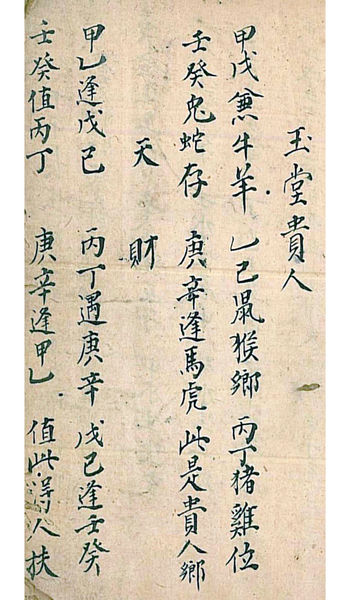 玉堂貴人
甲戊兼牛羊 乙己鼠猴鄉 丙丁猪雞位
壬癸兔蛇存 庚辛逢馬虎 此是貴人鄉
天財
甲乙逢戊己 丙丁遇庚辛 戊己逢壬癸
壬癸值丙丁 庚辛逢甲乙 值此得人扶